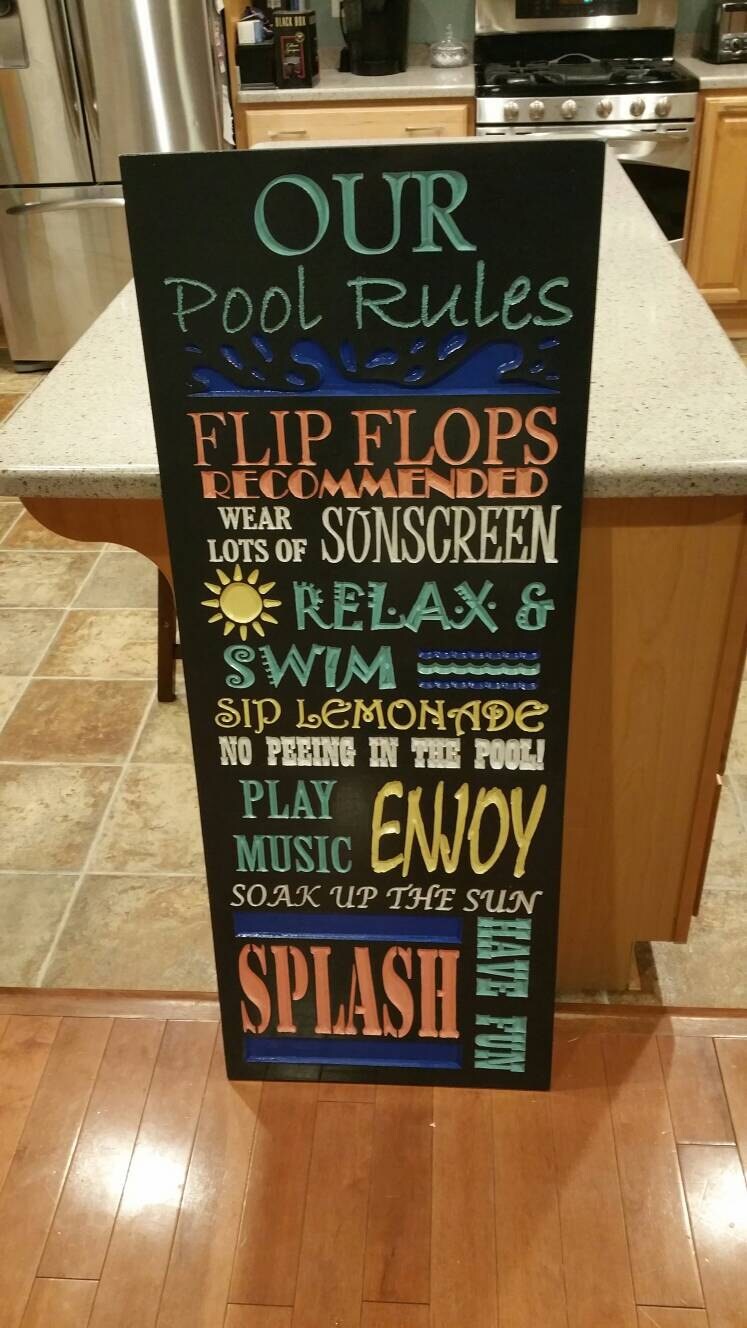 BLACK BOX
OUR
Pool Rules
FLIP FLOPS
RECOMMENDED
WEAR
LOTS OF SUNSCREEN
RELAX &
SWIM
SIP LEMONADE
NO PEEING IN THE POOL!
PLAY
MUSIC ENJOY
SOAK UP THE SUN
SPLASH
HAVE FUN